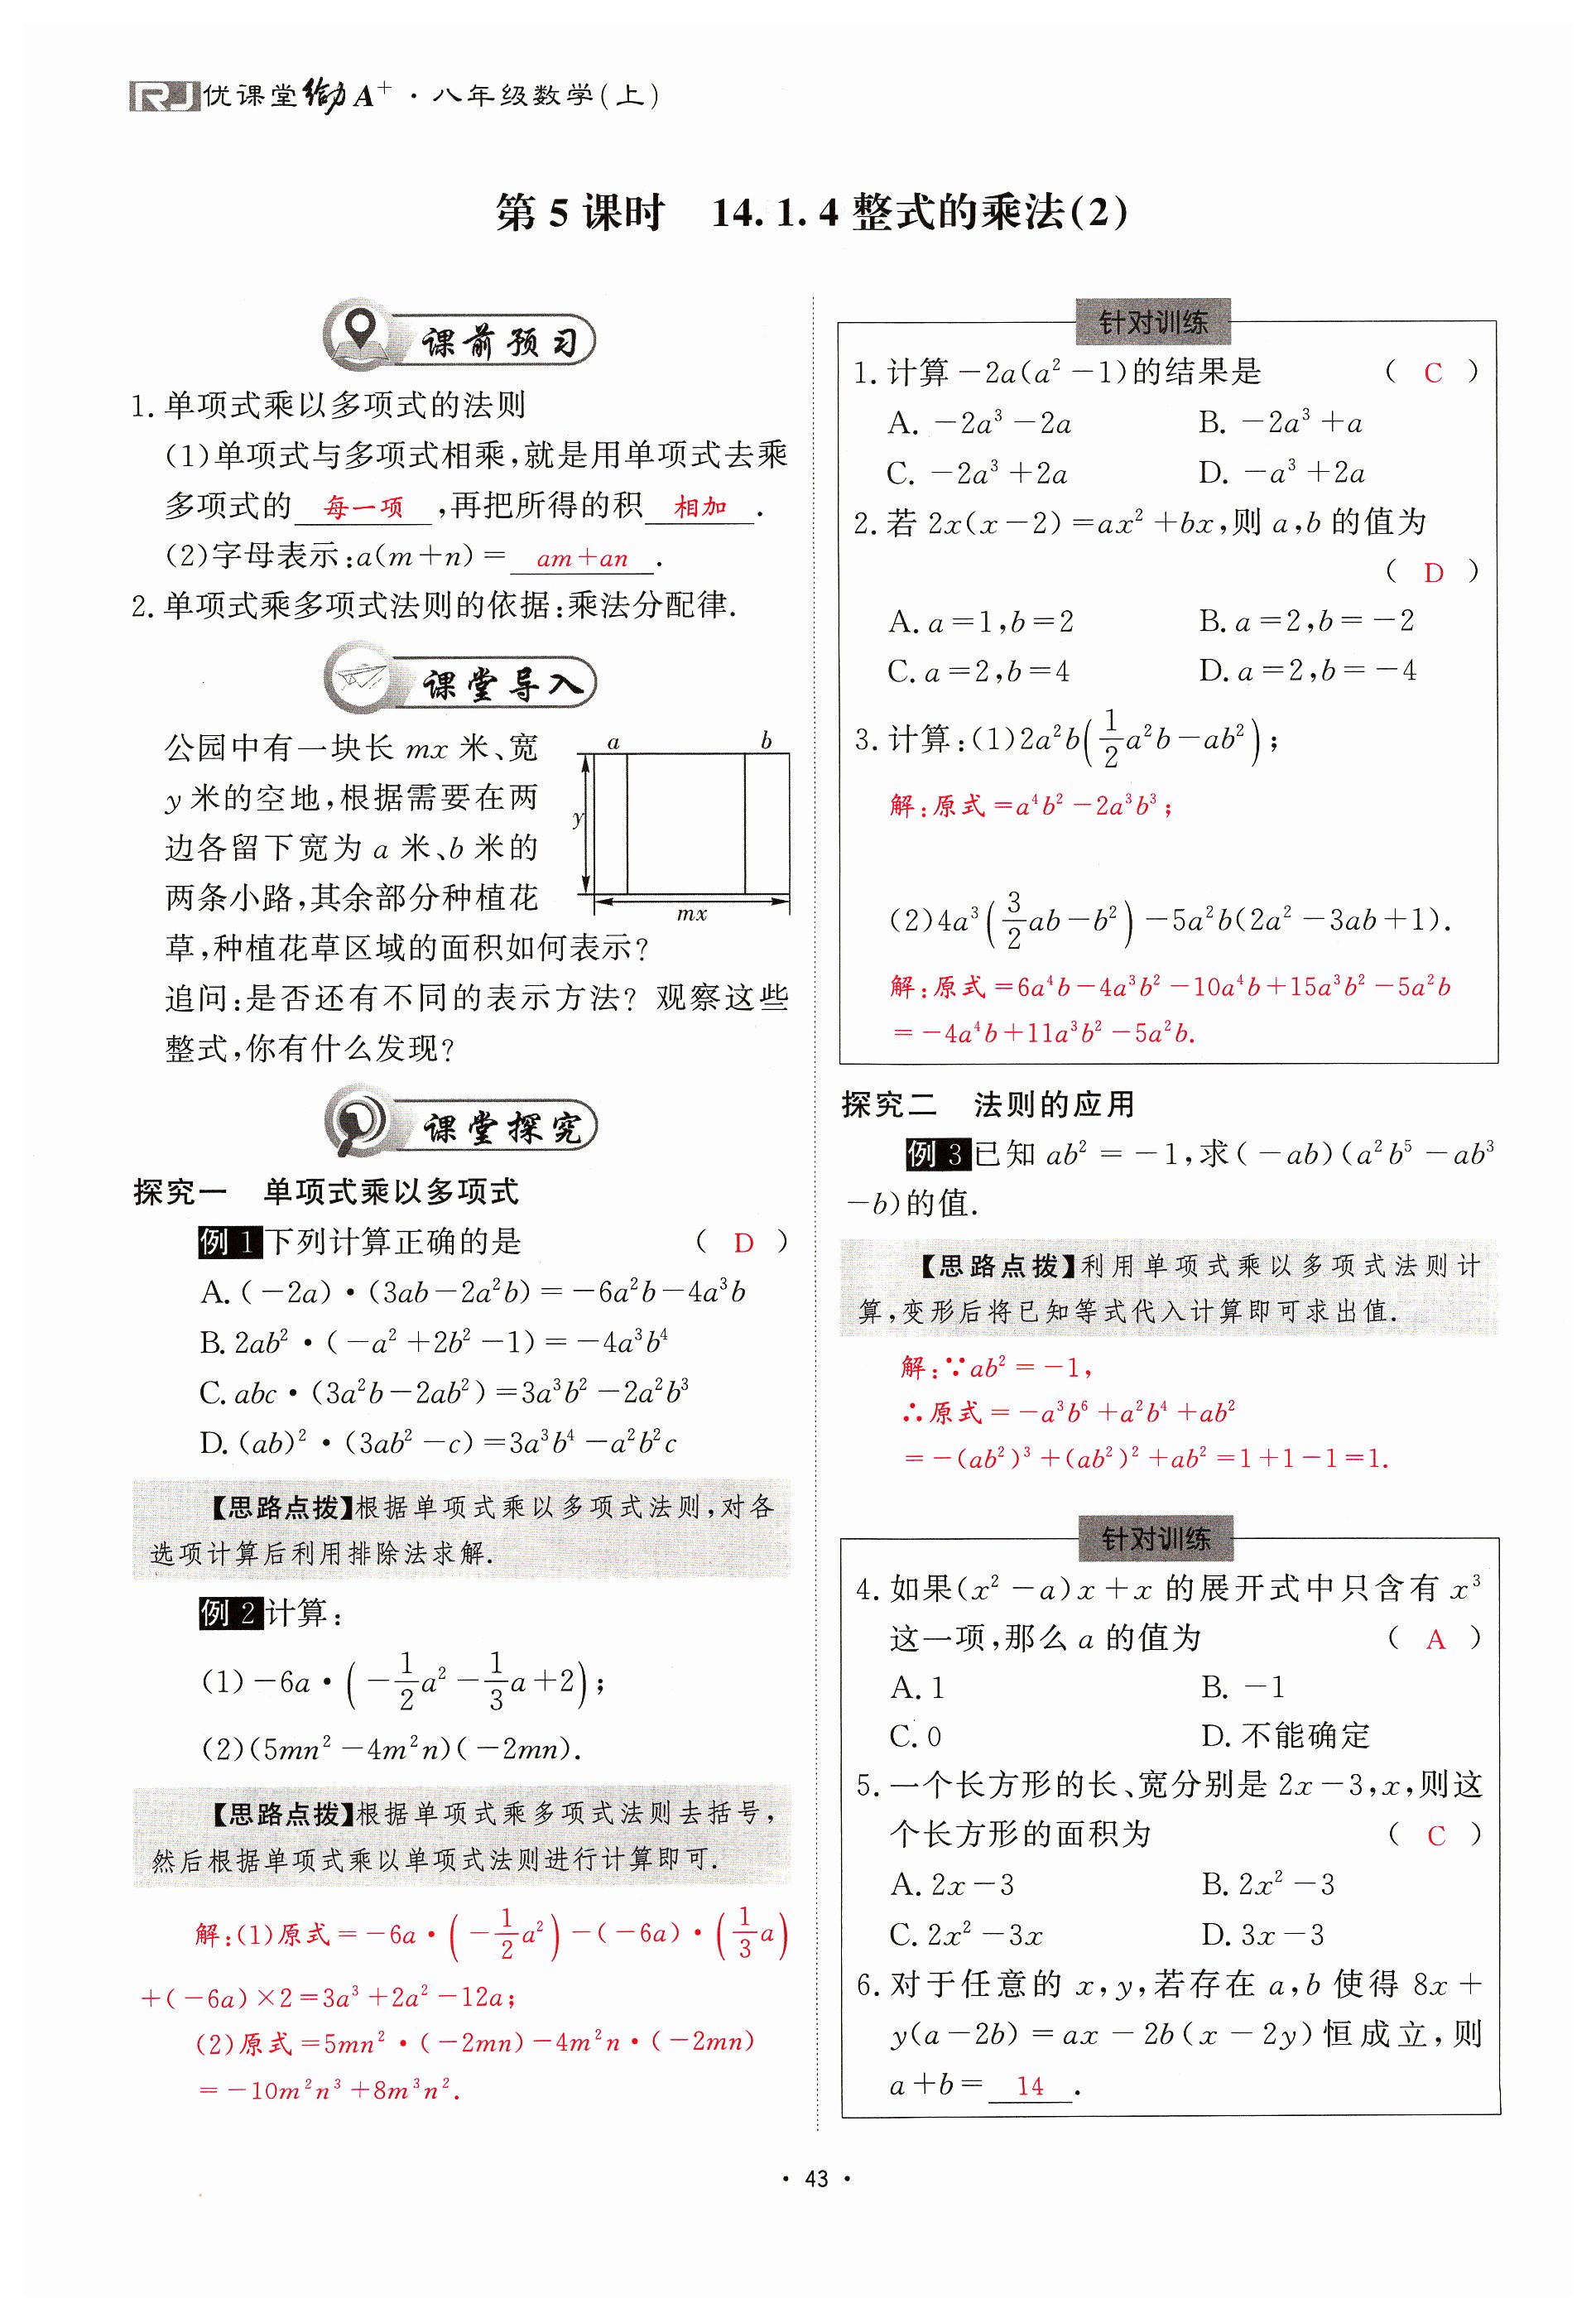 RJ优课堂给力A⁺·八年级数学(上)
第5课时　14.1.4整式的乘法(2)
课前预习
1.单项式乘以多项式的法则
(1)单项式与多项式相乘,就是用单项式去乘
多项式的 每一项 ,再把所得的积 相加 .
(2)字母表示:a(m+n)= am+an .
2.单项式乘多项式法则的依据:乘法分配律.
课堂导入
公园中有一块长 mx 米、宽
y 米的空地,根据需要在两
边各留下宽为 a 米、b 米的
两条小路,其余部分种植花
草,种植花草区域的面积如何表示?
a b
y
mx
追问:是否还有不同的表示方法? 观察这些
整式,你有什么发现?
课堂探究
探究一　单项式乘以多项式
例1 下列计算正确的是 ( D )
A.(-2a)·(3ab-2a²b)=-6a²b-4a³b
B.2ab²·(-a²+2b²-1)=-4a³b⁴
C.abc·(3a²b-2ab²)=3a³b²-2a²b³
D.(ab)²·(3ab²-c)=3a³b⁴-a²b²c
【思路点拨】根据单项式乘以多项式法则,对各
选项计算后利用排除法求解.
例2 计算:
(1)-6a·(-1/2a²-1/3a+2);
(2)(5mn²-4m²n)(-2mn).
【思路点拨】根据单项式乘多项式法则去括号,
然后根据单项式乘以单项式法则进行计算即可.
解:(1)原式=-6a·(-1/2a²)-(-6a)·(1/3a)
+(-6a)×2=3a³+2a²-12a;
(2)原式=5mn²·(-2mn)-4m²n·(-2mn)
=-10m²n³+8m³n².
针对训练
1.计算-2a(a²-1)的结果是 ( C )
A.-2a³-2a B.-2a³+a
C.-2a³+2a D.-a³+2a
2.若 2x(x-2)=ax²+bx,则 a,b 的值为
( D )
A.a=1,b=2 B.a=2,b=-2
C.a=2,b=4 D.a=2,b=-4
3.计算:(1)2a²b(1/2a²b-ab²);
解:原式=a⁴b²-2a³b³;
(2)4a³(3/2ab-b²)-5a²b(2a²-3ab+1).
解:原式=6a⁴b-4a³b²-10a⁴b+15a³b²-5a²b
=-4a⁴b+11a³b²-5a²b.
探究二　法则的应用
例3 已知 ab²=-1,求(-ab)(a²b⁵-ab³
-b)的值.
【思路点拨】利用单项式乘以多项式法则计
算,变形后将已知等式代入计算即可求出值.
解:∵ab²=-1,
∴原式=-a³b⁶+a²b⁴+ab²
=-(ab²)³+(ab²)²+ab²=1+1-1=1.
针对训练
4.如果(x²-a)x+x 的展开式中只含有 x³
这一项,那么 a 的值为 ( A )
A.1 B.-1
C.0 D.不能确定
5.一个长方形的长、宽分别是 2x-3,x,则这
个长方形的面积为 ( C )
A.2x-3 B.2x²-3
C.2x²-3x D.3x-3
6.对于任意的 x,y,若存在 a,b 使得 8x+
y(a-2b)=ax-2b(x-2y)恒成立,则
a+b= 14 .
·43·